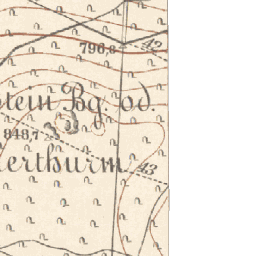 796,8
42
stein Bg. od.
848,7
erthurm
43